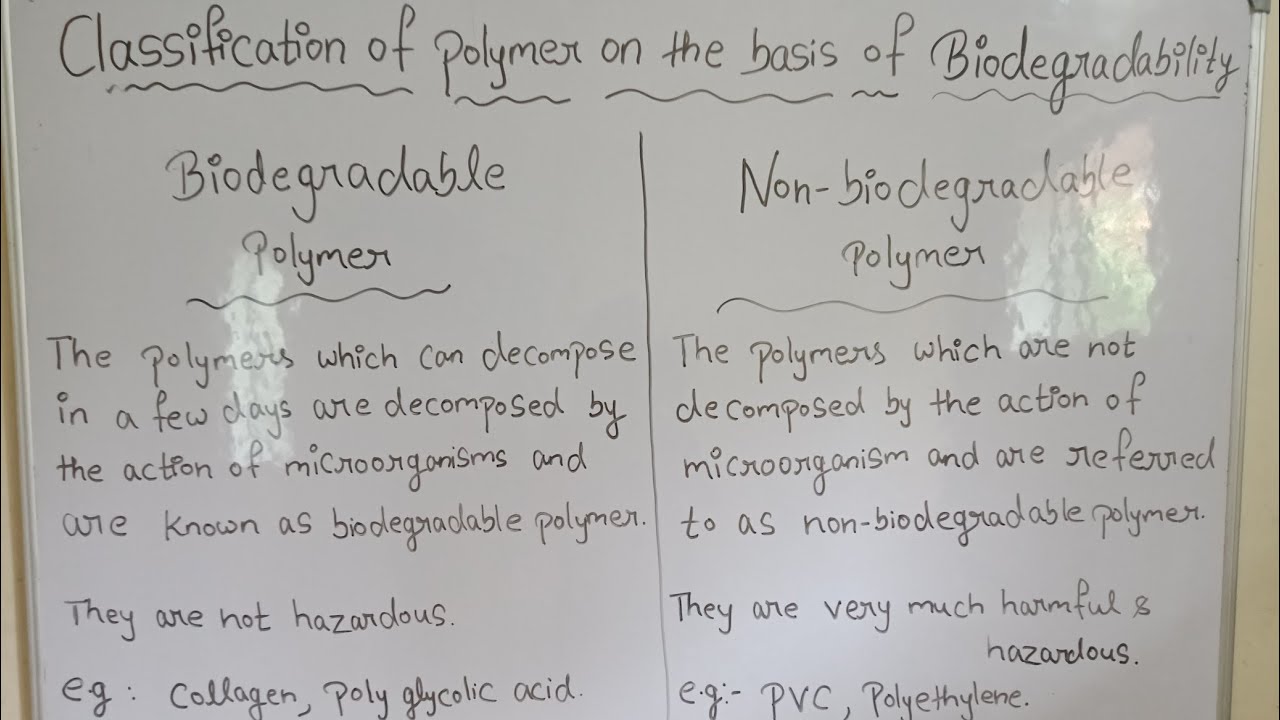 Classification of polymer on the basis of Biodegradability
Biodegradable
Polymer
The polymers which can decompose
in a few days are decomposed by
the action of microorganisms and
are known as biodegradable polymer.
They are not hazardous.
e.g : Collagen, Poly glycolic acid.
Non-biodegradable
Polymer
The polymers which are not
decomposed by the action of
microorganism and are referred
to as non-biodegradable polymer.
They are very much harmful &
hazardous.
e.g:- PVC, Polyethylene.